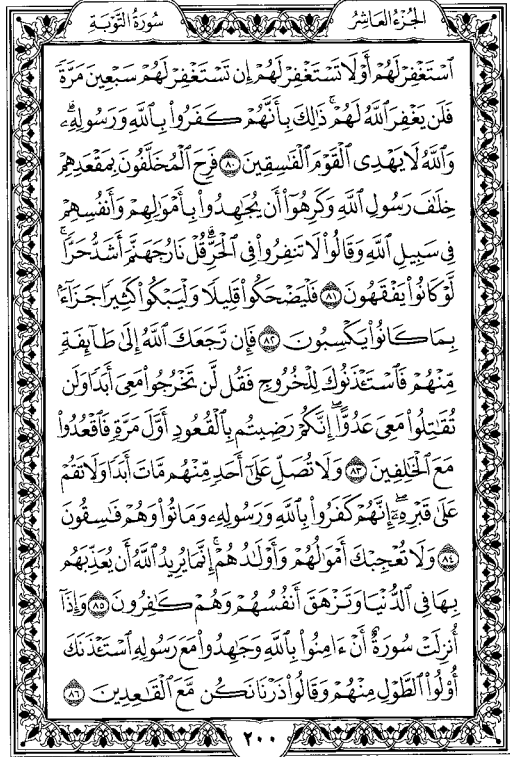 سُورَةُ التَّوۡبَةِ
الجُزۡءُ العَاشِرُ
ٱسۡتَغۡفِرۡ لَهُمۡ أَوۡ لَا تَسۡتَغۡفِرۡ لَهُمۡ إِن تَسۡتَغۡفِرۡ لَهُمۡ سَبۡعِينَ مَرَّةٗ
فَلَن يَغۡفِرَ ٱللَّهُ لَهُمۡۚ ذَٰلِكَ بِأَنَّهُمۡ كَفَرُواْ بِٱللَّهِ وَرَسُولِهِۦۗ
وَٱللَّهُ لَا يَهۡدِي ٱلۡقَوۡمَ ٱلۡفَٰسِقِينَ ٨٠ فَرِحَ ٱلۡمُخَلَّفُونَ بِمَقۡعَدِهِمۡ
خِلَٰفَ رَسُولِ ٱللَّهِ وَكَرِهُوٓاْ أَن يُجَٰهِدُواْ بِأَمۡوَٰلِهِمۡ وَأَنفُسِهِمۡ
فِي سَبِيلِ ٱللَّهِ وَقَالُواْ لَا تَنفِرُواْ فِي ٱلۡحَرِّۗ قُلۡ نَارُ جَهَنَّمَ أَشَدُّ حَرّٗاۚ
لَّوۡ كَانُواْ يَفۡقَهُونَ ٨١ فَلۡيَضۡحَكُواْ قَلِيلٗا وَلۡيَبۡكُواْ كَثِيرٗا جَزَآءَۢ
بِمَا كَانُواْ يَكۡسِبُونَ ٨٢ فَإِن رَّجَعَكَ ٱللَّهُ إِلَىٰ طَآئِفَةٖ
مِّنۡهُمۡ فَٱسۡتَـٔۡذَنُوكَ لِلۡخُرُوجِ فَقُل لَّن تَخۡرُجُواْ مَعِيَ أَبَدٗا وَلَن
تُقَٰتِلُواْ مَعِيَ عَدُوًّاۖ إِنَّكُمۡ رَضِيتُم بِٱلۡقُعُودِ أَوَّلَ مَرَّةٖ فَٱقۡعُدُواْ
مَعَ ٱلۡخَٰلِفِينَ ٨٣ وَلَا تُصَلِّ عَلَىٰٓ أَحَدٖ مِّنۡهُم مَّاتَ أَبَدٗا وَلَا تَقُمۡ
عَلَىٰ قَبۡرِهِۦٓۖ إِنَّهُمۡ كَفَرُواْ بِٱللَّهِ وَرَسُولِهِۦ وَمَاتُواْ وَهُمۡ فَٰسِقُونَ
٨٤ وَلَا تُعۡجِبۡكَ أَمۡوَٰلُهُمۡ وَأَوۡلَٰدُهُمۡۚ إِنَّمَا يُرِيدُ ٱللَّهُ أَن يُعَذِّبَهُم
بِهَا فِي ٱلدُّنۡيَا وَتَزۡهَقَ أَنفُسُهُمۡ وَهُمۡ كَٰفِرُونَ ٨٥ وَإِذَآ
أُنزِلَتۡ سُورَةٌ أَنۡ ءَامِنُواْ بِٱللَّهِ وَجَٰهِدُواْ مَعَ رَسُولِهِ ٱسۡتَـٔۡذَنَكَ
أُوْلُواْ ٱلطَّوۡلِ مِنۡهُمۡ وَقَالُواْ ذَرۡنَا نَكُن مَّعَ ٱلۡقَٰعِدِينَ ٨٦
٢٠٠